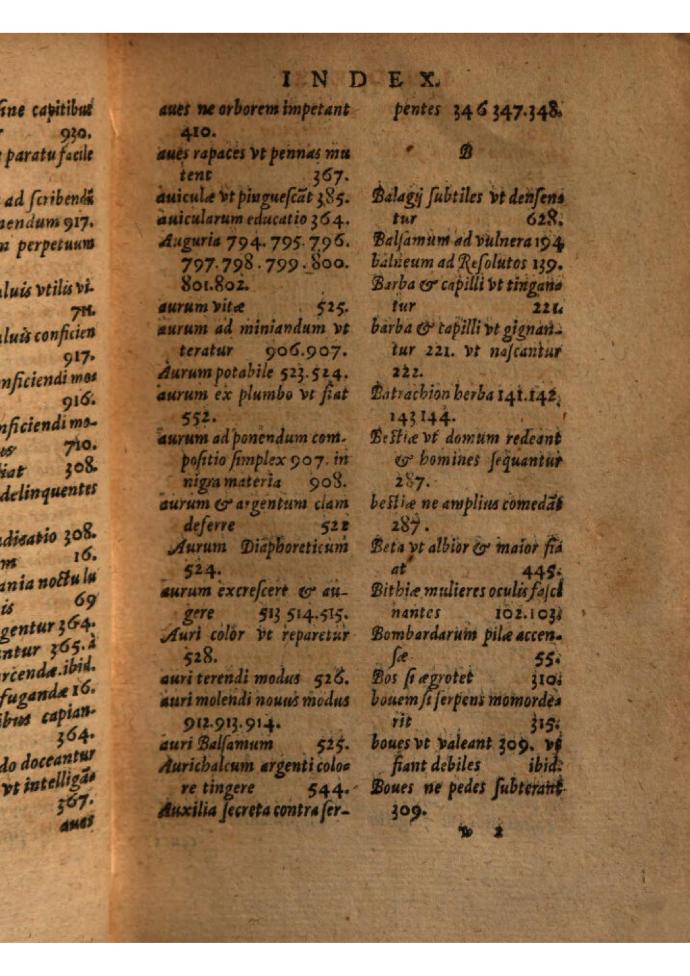 ſine capitibus
930.
e paratu facile
ad ſcribendū
nendum 917.
m perpetuum
luis vtilis vi-
711.
luis conficien
917.
nficiendi mos
916.
nficiendi mo-
710.
iat 308.
delinquentes
dicatio 308.
m 16.
ania noctu lu
is 69
gentur 364.
antur 365. à
rcendæ. ibid.
fugandæ 16.
ibus capian-
364.
do doceantur
vt intelligāt
367.
aues
INDEX.
aues ne orborem impetant
410.
aues rapaces vt pennas mu
tent 367.
auiculæ vt pingueſcāt 385.
auicularum educatio 364.
Auguria 794. 795. 796.
797. 798. 799. 800.
801. 802.
aurum vitæ 525.
aurum ad miniandum vt
teratur 906. 907.
Aurum potabile 523. 524.
aurum ex plumbo vt fiat
552.
aurum ad ponendum com-
poſitio ſimplex 907. in
nigra materia 908.
aurum & argentum clam
deferre 522
Aurum Diaphoreticum
524.
aurum excreſcere & au-
gere 513 514. 515.
Auri color vt reparetur
528.
auri terendi modus 526.
auri molendi nouus modus
912. 913. 914.
auri Balſamum 525.
Aurichalcum argenti colo-
re tingere 544.
Auxilia ſecreta contra ſer-
pentes 346 347. 348.
B
Balagij ſubtiles vt denſen-
tur 628.
Balſamum ad vulnera 194
balneum ad Reſolutos 139.
Barba & capilli vt tingan-
tur 221.
barba & capilli vt gignan-
tur 221. vt naſcantur
222.
Batrachion herba 141. 142.
143 144.
Beſtiæ vt domum redeant
& homines ſequantur
287.
beſtiæ ne amplius comedāt
287.
Beta vt albior & maior fi-
at 445.
Bithiæ mulieres oculis faſci
nantes 102. 103.
Bombardarum pilæ accen-
ſæ 55.
Bos ſi ægrotet 310.
bouem ſi ſerpens momorde-
rit 315.
boues vt valeant 309. vt
fiant debiles ibid.
Boues ne pedes ſubterant
309.
2